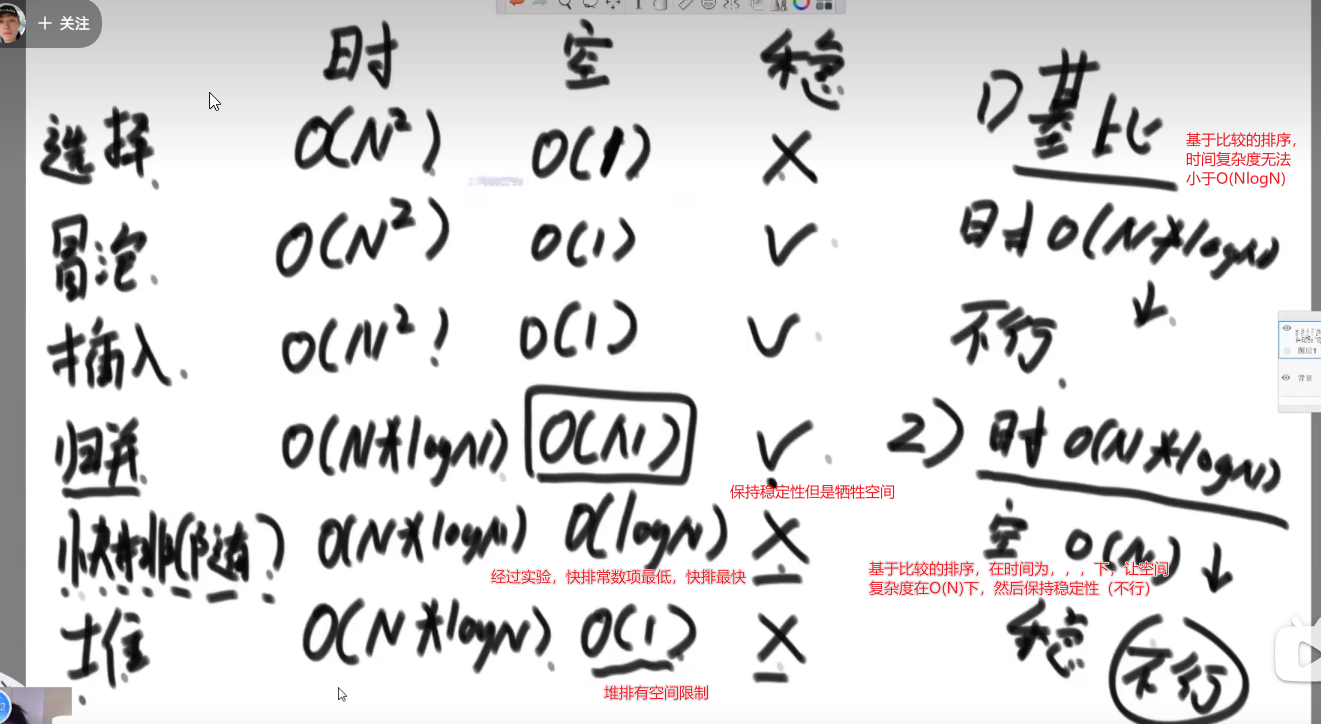 + 关注
时 空 稳
选择 O(N²) O(1) X
冒泡 O(N²) O(1) √
插入 O(N²) O(1) √
归并 O(N*logN) O(N) √
保持稳定性但是牺牲空间
快排(随) O(N*logN) O(logN) X
经过实验，快排常数项最低，快排最快
堆 O(N*logN) O(1) X
堆排有空间限制
1) 基比
基于比较的排序，
时间复杂度无法
小于O(NlogN)
时 O(N*logN) ↓
不行.
2) 时 O(N*logN)
空 O(N) ↓
基于比较的排序，在时间为，，，下，让空间
复杂度在O(N)下，然后保持稳定性（不行）
稳 不行
图层1
背景